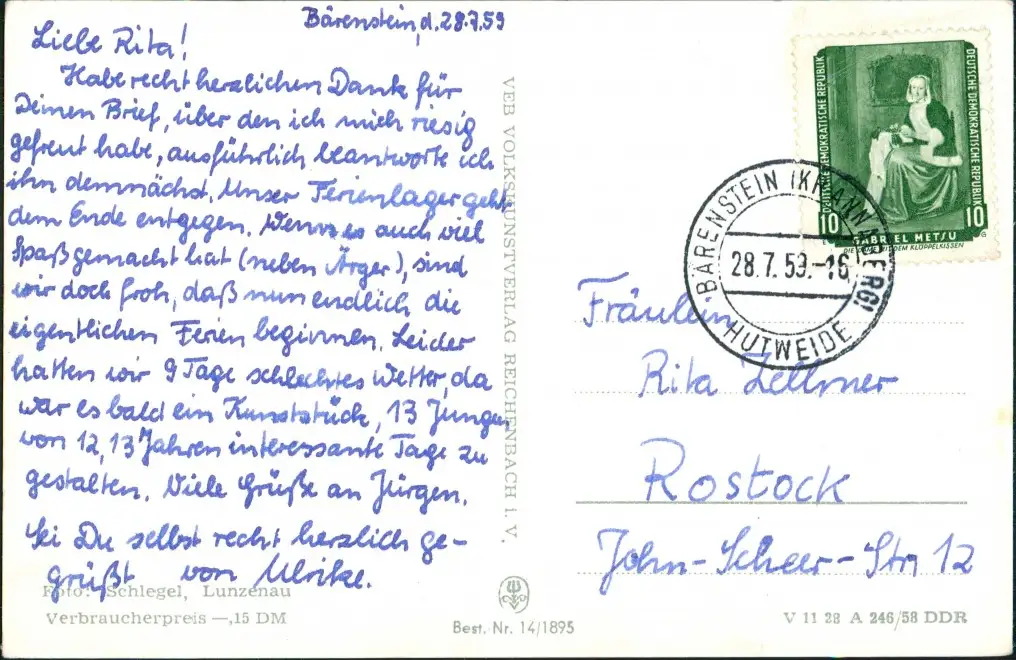 Bärenstein, d. 28.7.59
Liebe Rita!
Habe recht herzlichen Dank für
Deinen Brief, über den ich mich riesig
gefreut habe, ausführlich beantworte ich
ihn demnächst. Unser Ferienlager geht
dem Ende entgegen. Wenn es auch viel
Spaß gemacht hat (neben Ärger), sind
wir doch froh, daß nun endlich die
eigentlichen Ferien beginnen. Leider
hatten wir 9 Tage schlechtes Wetter, da
war es bald ein Kunststück, 13 Jungen
von 12, 13 Jahren interessante Tage zu
gestalten. Viele Grüße an Jürgen.
Sei Du selbst recht herzlich ge-
grüßt von Ulrike.
Foto: Schlegel, Lunzenau
Verbraucherpreis —,15 DM
VEB VOLKSKUNSTVERLAG REICHENBACH i. V.
Best. Nr. 14/1895
DEUTSCHE DEMOKRATISCHE REPUBLIK
DEUTSCHE DEMOKRATISCHE REPUBLIK
10
10
GABRIEL METSU
DIE DAME MIT DEM KLÖPPELKISSEN
BÄRENSTEIN (KR ANNABERG)
28.7.59.-16
HUTWEIDE
Fräulein
Rita Zellmer
Rostock
John-Scheer-Str. 12
V 11 28 A 246/58 DDR